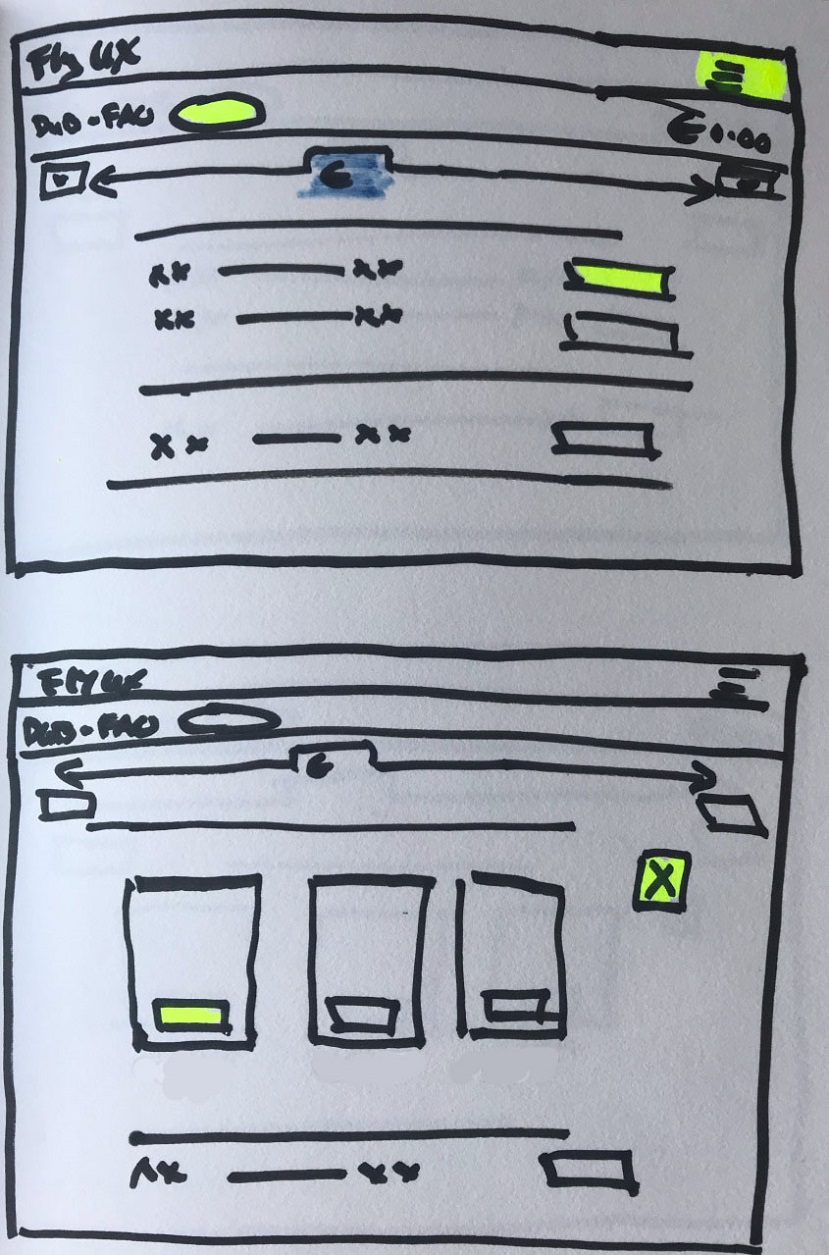 Fly UX
DUB - FAO
€0.00
€
xx xx
xx xx
xx xx
FLY UX
DUB - FAO
€
X
xx xx